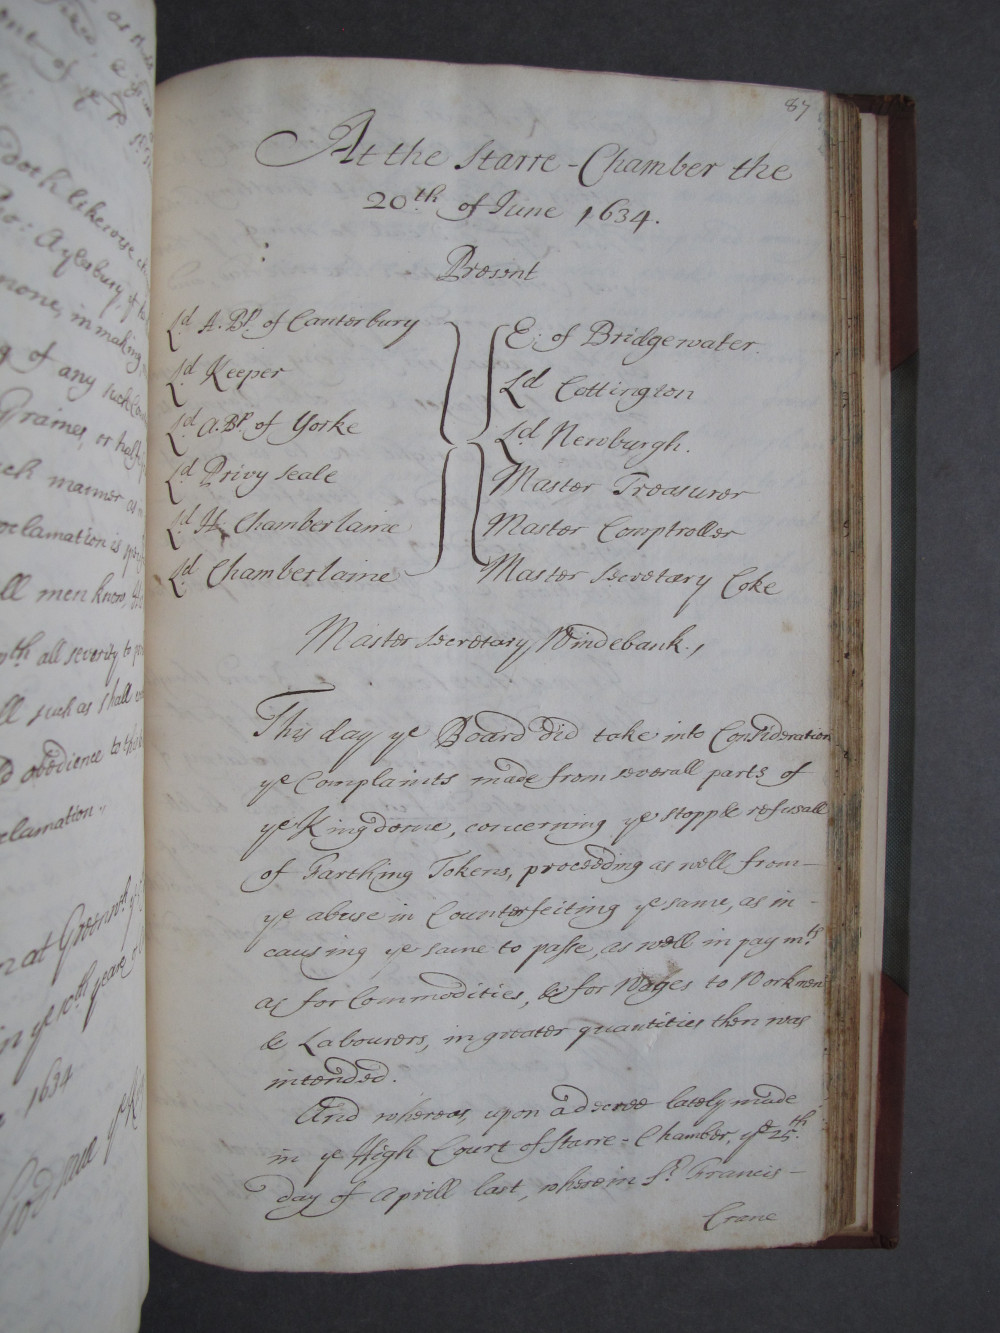 as
of
doth likewise
Aylesbury, of
none, in making
g of any such
Graines, or half
manner as
oclamation is
ll men know,
wth all severity to
ll such as shall
d obedience to
clamation.,
n at
in ye 10th yeare
1634
God save ye K
87
At the Starre-Chamber the
20th of June 1634.
Present
Ld A.Bp. of Canterbury
Ld Keeper
Ld A.Bp of Yorke
Ld Privy Seale
Ld H. Chamberlaine
Ld Chamberlaine
E: of Bridgewater.
Ld Cottington
Ld Newburgh.
Master Treasurer
Master Comptroller
Master Secretary Coke
Master Secretary Windebank.,
This day ye Board did take into Consideration
ye Complaints made from severall parts of
ye Kingdome, concerning ye stopp & refusall
of Farthing Tokens, proceeding as well from-
ye abuse in Counterfeiting ye same, as in-
causing ye same to passe, as well in paymts
as for Commodities, & for Wages to Workmen
& Labourers, in greater quantities then was
intended.
And whereas, upon a decree lately made
in ye High Court of Starre-Chamber, ye 25th.
day of Aprill last, wherein Sr. Francis-
Crane